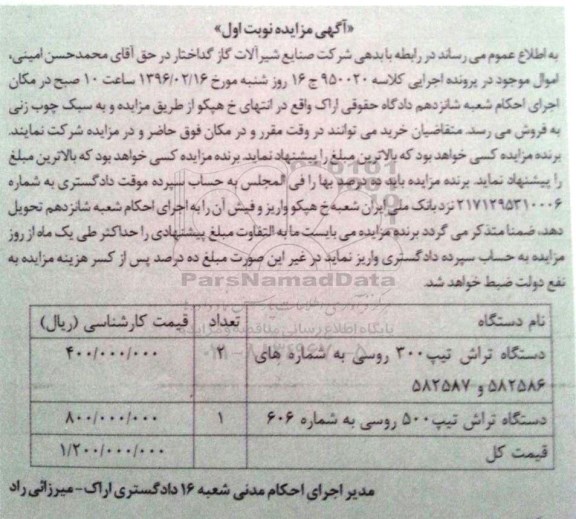 «آگهی مزایده نوبت اول»
به اطلاع عموم می رساند در رابطه با بدهی شرکت صنایع شیرآلات گاز گداختار در حق آقای محمدحسن امینی،
اموال موجود در پرونده اجرایی کلاسه ۹۵۰۰۲۰ ج ۱۶ روز شنبه مورخ ۱۳۹۶/۰۲/۱۶ ساعت ۱۰ صبح در مکان
اجرای احکام شعبه شانزدهم دادگاه حقوقی اراک واقع در انتهای خ هپکو از طریق مزایده و به سبک چوب زنی
به فروش می رسد. متقاضیان خرید می توانند در وقت مقرر و در مکان فوق حاضر و در مزایده شرکت نمایند.
برنده مزایده کسی خواهد بود که بالاترین مبلغ را پیشنهاد نماید. برنده مزایده کسی خواهد بود که بالاترین مبلغ
را پیشنهاد نماید. برنده مزایده باید ده درصد بها را فی المجلس به حساب سپرده موقت دادگستری به شماره
۲۱۷۱۲۹۵۳۱۰۰۰۶ نزد بانک ملی ایران شعبه خ هپکو واریز و فیش آن را به اجرای احکام شعبه شانزدهم تحویل
دهد، ضمنا متذکر می گردد برنده مزایده می بایست مابه التفاوت مبلغ پیشنهادی را حداکثر طی یک ماه از روز
مزایده به حساب سپرده دادگستری واریز نماید در غیر این صورت مبلغ ده درصد پس از کسر هزینه مزایده به
نفع دولت ضبط خواهد شد.
ParsNamadData
نام دستگاه تعداد قیمت کارشناسی (ریال)
دستگاه تراش تیپ۳۰۰ روسی به شماره های ۲ ۴۰۰/۰۰۰/۰۰۰
۵۸۲۵۸۶ و ۵۸۲۵۸۷
دستگاه تراش تیپ۵۰۰ روسی به شماره ۶۰۶ ۱ ۸۰۰/۰۰۰/۰۰۰
قیمت کل ۱/۲۰۰/۰۰۰/۰۰۰
مدیر اجرای احکام مدنی شعبه ۱۶ دادگستری اراک-میرزائی راد